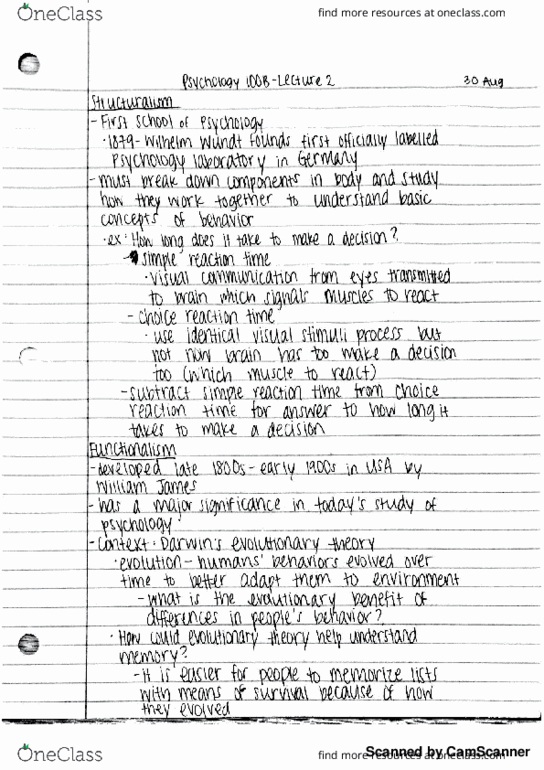 OneClass
find more resources at oneclass.com
Psychology 100B-Lecture 2
30 Aug
Structuralism
- First School of Psychology
· 1879 - Wilhelm Wundt founds first officially labelled
Psychology laboratory in Germany
- must break down components in body and study
how they work together to understand basic
concepts of behavior
· ex: How long does it take to make a decision?
simple reaction time
· visual communication from eyes transmitted
to brain which signals muscles to react
- choice reaction time
· use identical visual stimuli process but
not now brain has too make a decision
too (which muscle to react)
- subtract simple reaction time from choice
reaction time for answer to how long it
takes to make a decision
Functionalism
- developed late 1800s - early 1900s in USA by
William James
- has a major significance in today's study of
psychology
- Context: Darwin's evolutionary theory
· evolution - humans' behaviors evolved over
time to better adapt them to environment
- what is the evolutionary benefit of
differences in people's behavior?
· How could evolutionary theory help understand
memory?
- It is easier for people to memorize lists
with means of survival because of how
they evolved
OneClass
find more resources at oneclass.com
Scanned by CamScanner